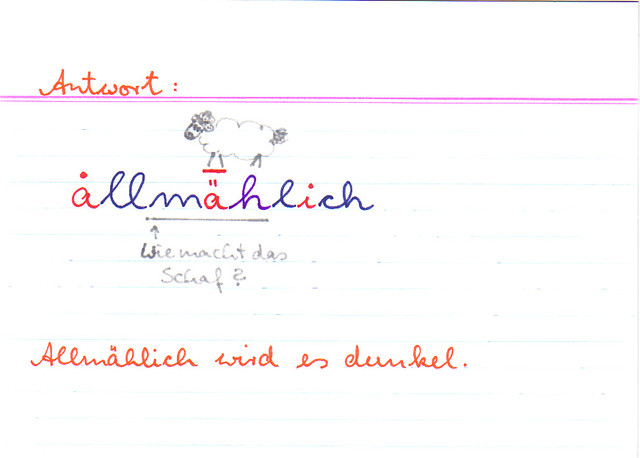 Antwort:
allmählich
Wie macht das
Schaf?
Allmählich wird es dunkel.